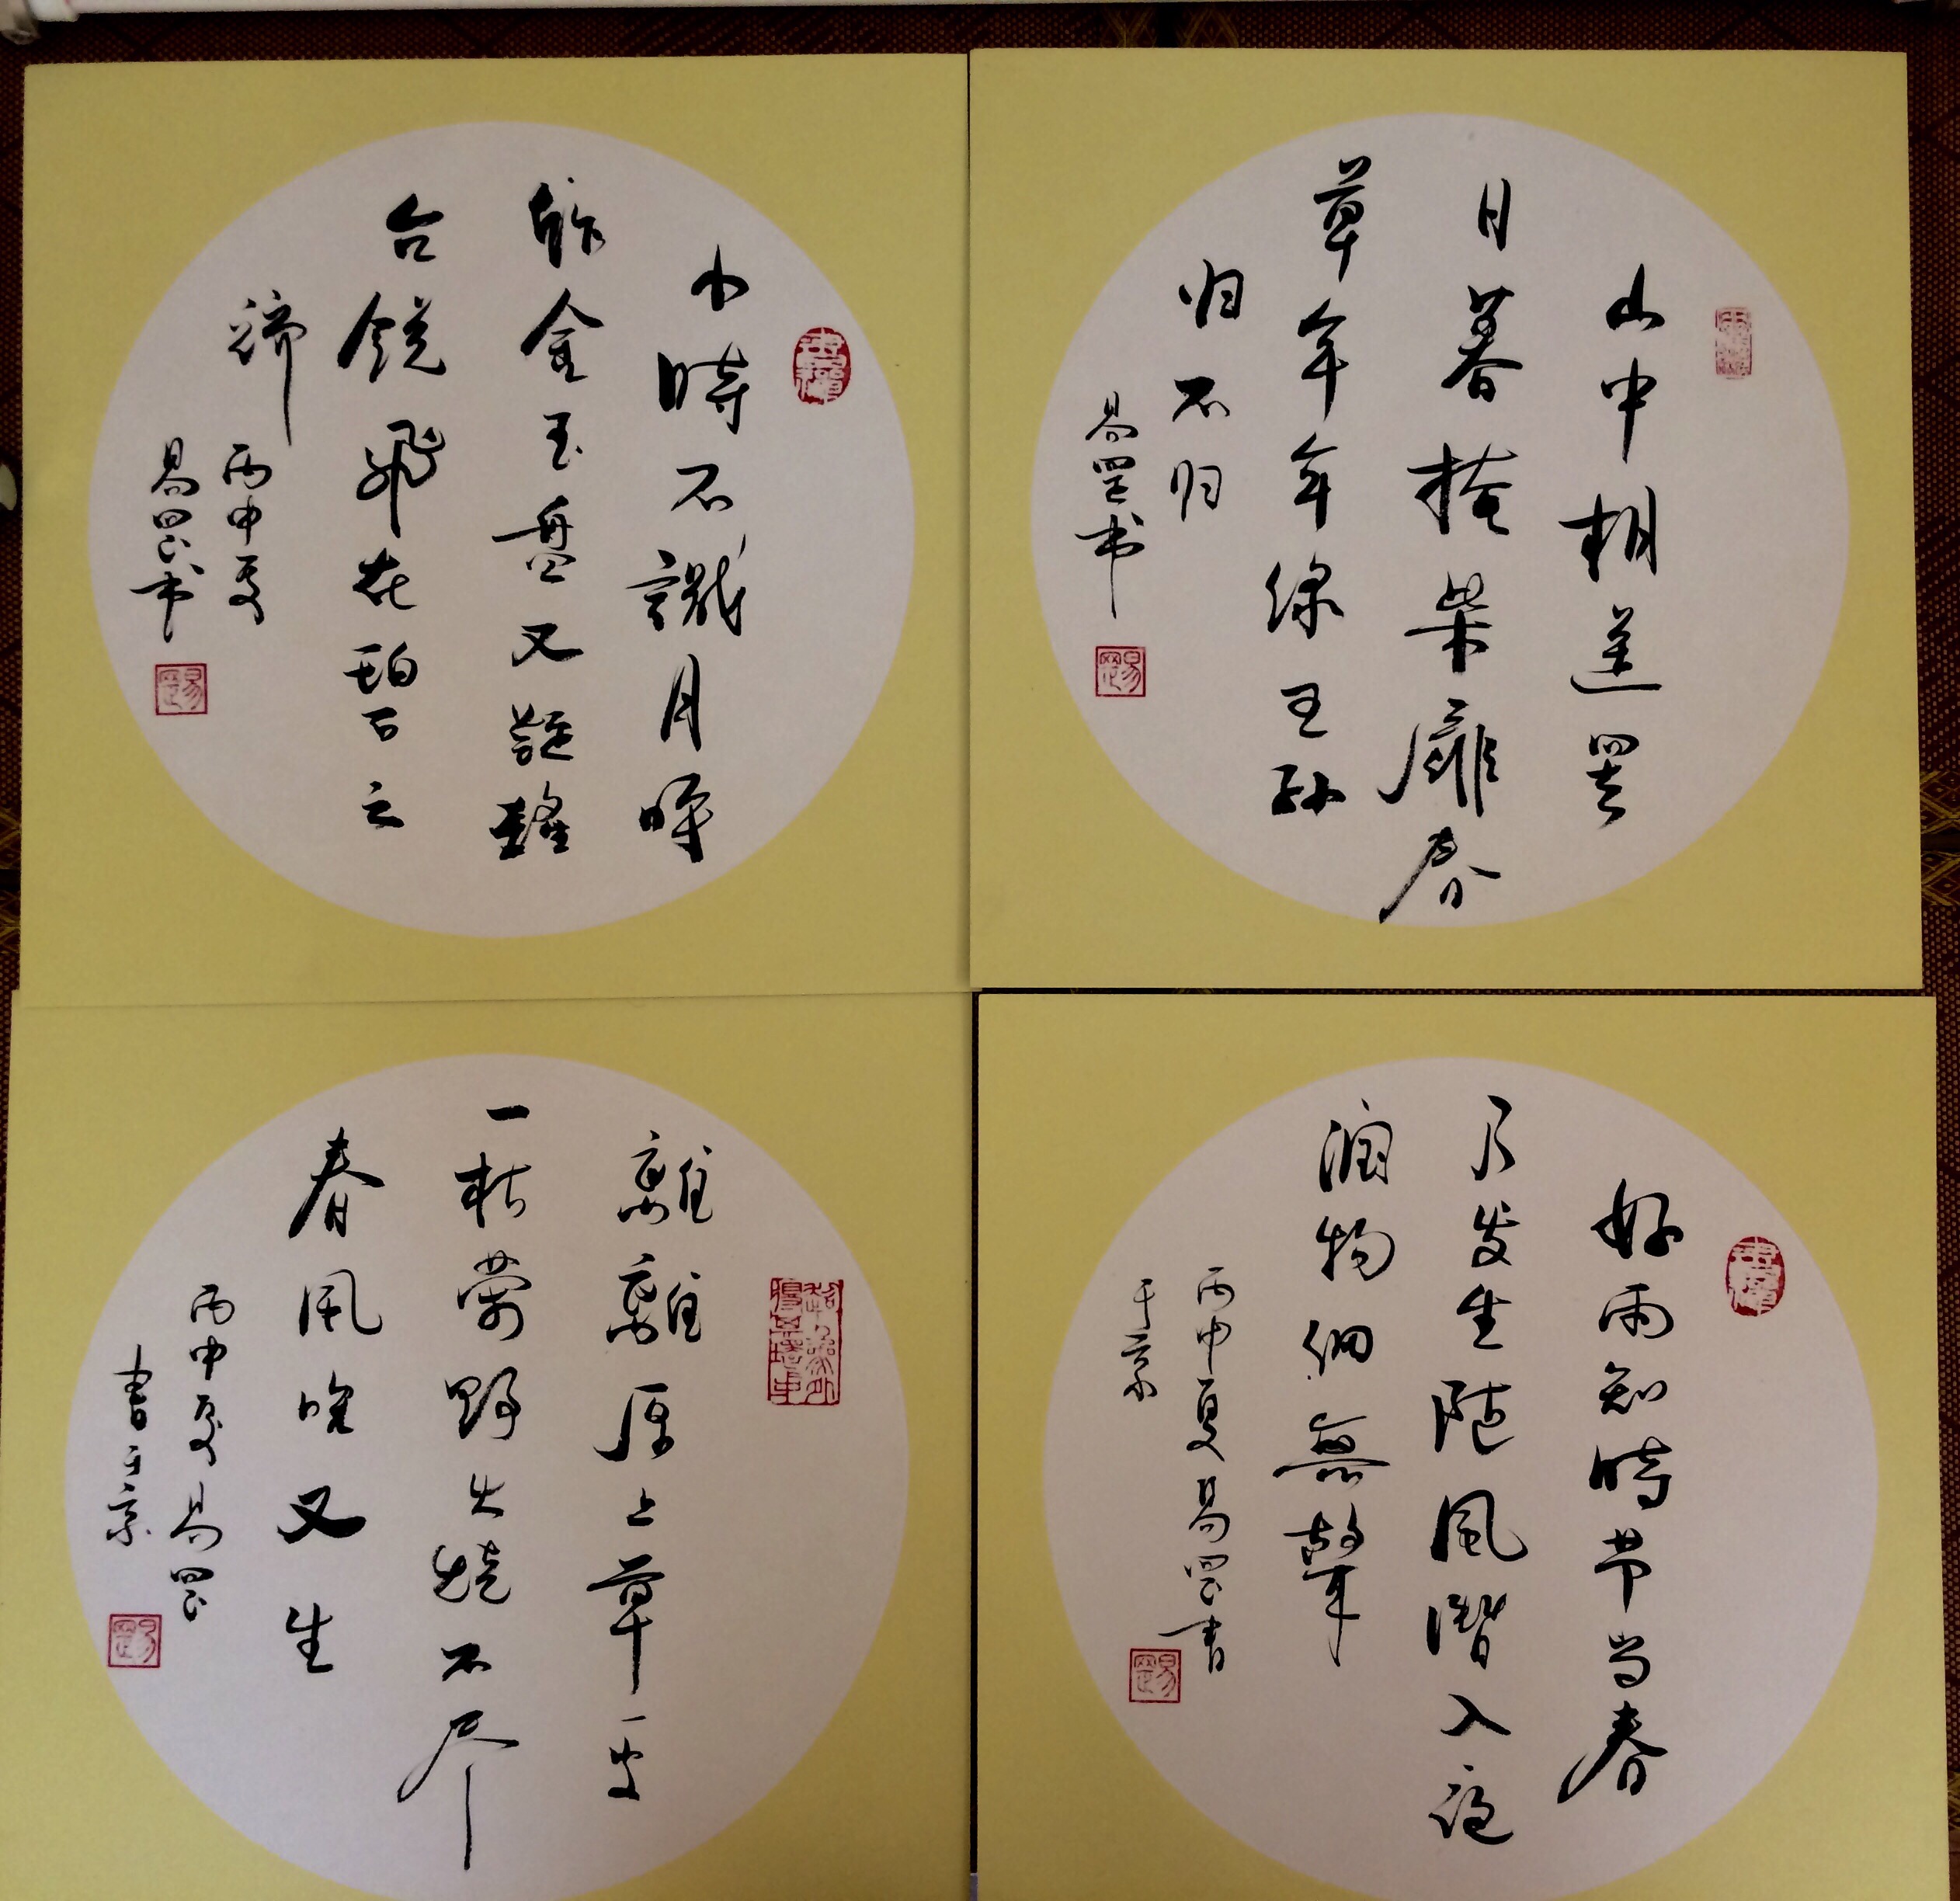 小時不識月呼
作金玉盘又疑瑤
台镜飛在碧云
端
丙申夏
易罡书
易罡
山中相送罢
日暮掩柴扉春
草年年绿王孙
归不归
易罡书
易罡
離離原上草一岁
一枯荣野火烧不尽
春風吹又生
丙申夏易罡
書于京
易罡
好雨知時节当春
乃发生随風潛入夜
潤物细無聲
丙申夏易罡書
于京
易罡